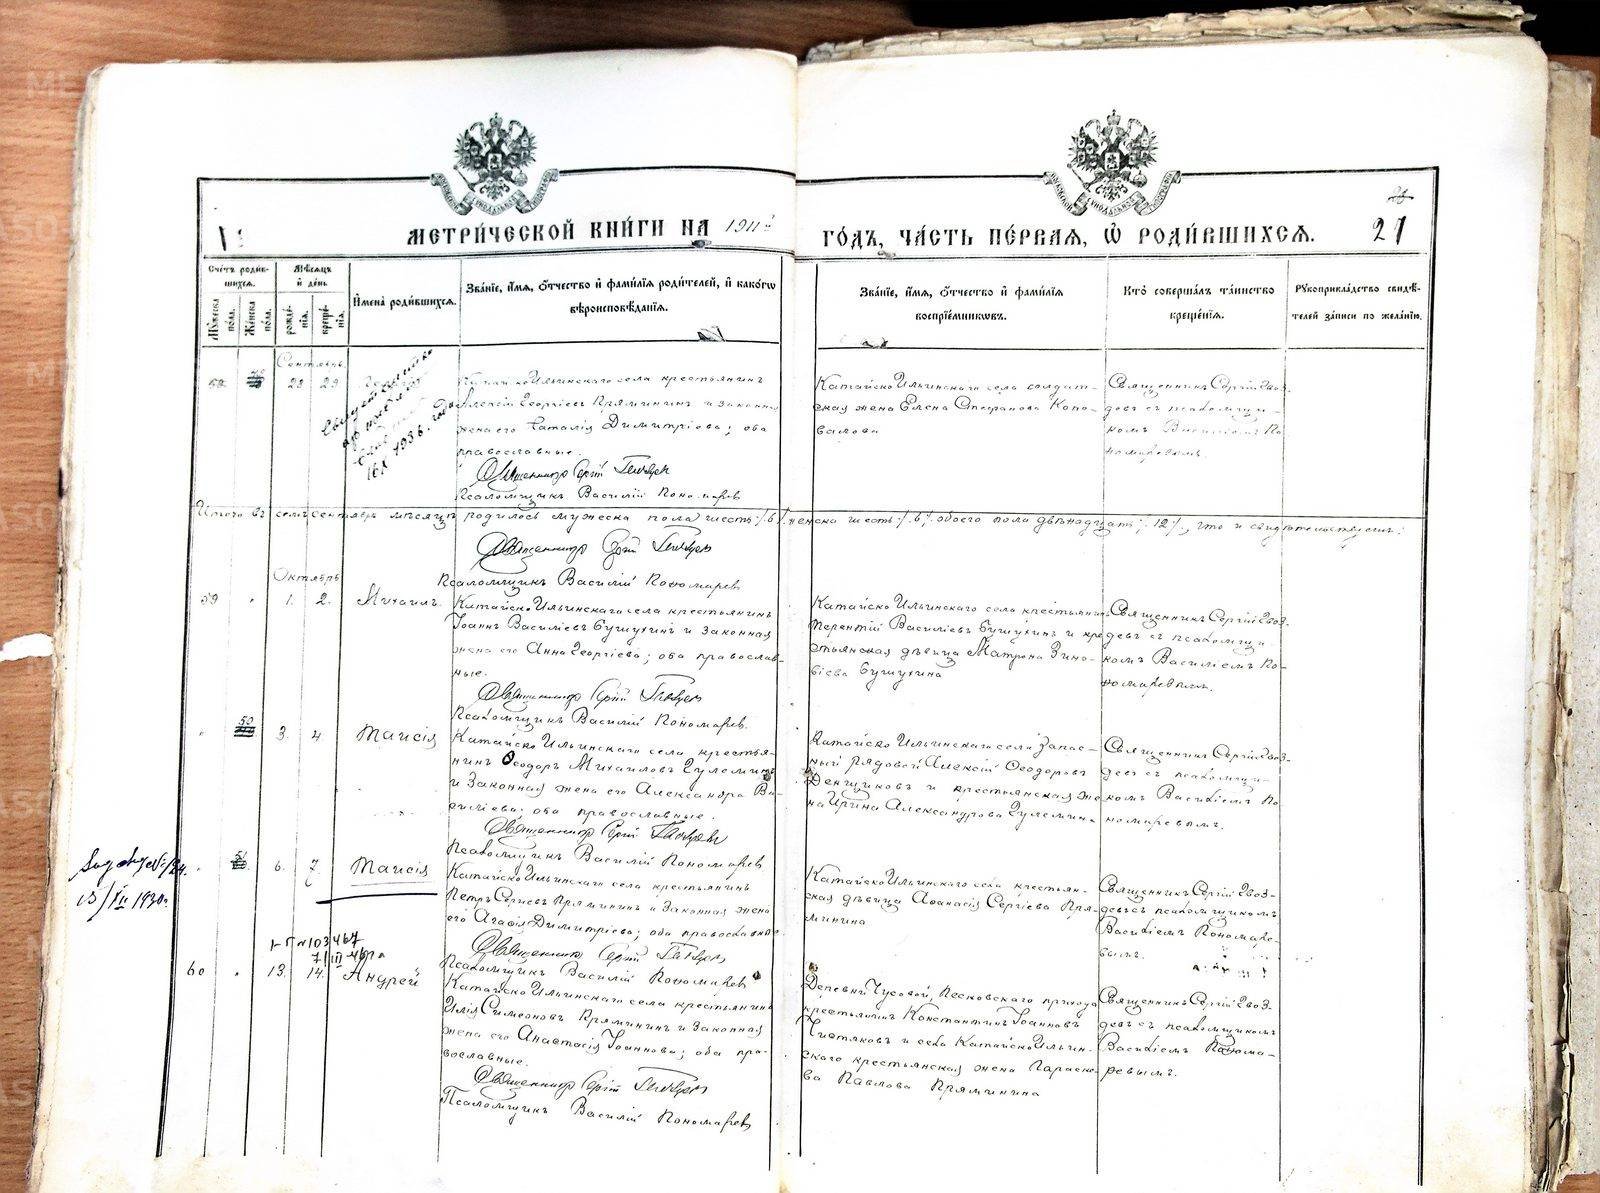 МЕТРИ́ЧЕСКОЙ КНИ́ГИ НА 1911й ГО́ДЪ, ЧА́СТЬ ПЕ́РВАЯ, Ѽ РОДИ́ВШИХСЯ.
21
Сче́тъ роди́в-
шихся.
Му́жеска по́ла.
Же́нска по́ла.
Мѣ́сяцъ
и́ де́нь
рожде́-
нія.
креще́-
нія.
И́мена роди́вшихся.
Зва́ніе, и́мя, ѻ́тчество и́ фами́лія роди́телей, и́ како́гѡ
вѣроисповѣ́данія.
Зва́ніе, и́мя, ѻ́тчество и́ фами́лія
воспріе́мникѡвъ.
Кто̀ соверша́лъ та́инство
креще́нія.
Рукоприкла́дство свидѣ́-
телей за́писи по жела́нію.
Сентябрь
58 28 29
Катайско Ильинскаго села крестьянинъ
Алексій Георгіевъ Прямининъ и законная
жена его Наталія Димитріева; оба
православные.
Священникъ Сергій Гвоздев
Псаломщикъ Василій Пономарев
Катайско Ильинскаго села солдат-
ская жена Елена Стефанова Коно-
валова
Священникъ Сергій Гвоз-
девъ съ псаломщи-
комъ Василіемъ По-
номаревымъ.
1936
Итого въ семъ сентябрѣ мѣсяцѣ родилось мужеска пола шесть /.6/. женска шесть /.6/. обоего пола двѣнадцать /.12./, что и свидѣтельствуемъ:
Священникъ Сергій Гвоздев
Псаломщикъ Василій Пономарев
Октябрь
59 " 1. 2. Михаилъ.
Катайско Ильинскаго села крестьянинъ
Іоаннъ Василіевъ Бушухинъ и законная
жена его Анна Георгіева; оба православ-
ные.
Священникъ Сергій Гвоздев
Псаломщикъ Василій Пономарев.
Катайско Ильинскаго села крестьянинъ
Терентій Василіевъ Бушухинъ и кре-
стьянская дѣвица Матрона Зино-
віева Бушухина
Священникъ Сергій Гвоз-
девъ съ псаломщи-
комъ Василіемъ По-
номаревымъ.
" 50 3. 4 Таисія
Катайско Ильинскаго села крестья-
нинъ Ѳеодоръ Михаиловъ Гулеминъ
и законная жена его Александра Ва-
силіева; оба православные.
Священникъ Сергій Гвоздев
Псаломщикъ Василій Пономарев
Катайско Ильинскаго села запас-
ный рядовой Алексій Ѳеодоровъ
Денщиковъ и крестьянская же-
на Ирина Александрова Гулемина
Священникъ Сергій Гвоз-
девъ съ псаломщи-
комъ Василіемъ По-
номаревымъ.
15/III 1930г
" 51 6. 7 Таисія
Катайско Ильинскаго села крестьянинъ
Петръ Сергіевъ Прямининъ и законная жена
его Агафія Димитріева; оба православные.
Священникъ Сергій Гвоздев
Псаломщикъ Василій Пономарев
Катайско Ильинскаго села крестьян-
ская дѣвица Аѳанасія Сергіева Пря-
минина
Священникъ Сергій Гвоз-
девъ съ псаломщикомъ
Василіемъ Пономаре-
вымъ.
103467
60 " 13. 14. Андрей
Катайско Ильинскаго села крестьянинъ
Илія Симеоновъ Пряминин и законная
жена его Анастасія Іоаннова; оба пра-
вославные.
Священникъ Сергій Гвоздев
Псаломщикъ Василій Пономарев
Деревни Чусовой, Песковскаго прихода
крестьянинъ Константинъ Іоанновъ
Чистяковъ и села Катайско Ильин-
скаго крестьянская жена Параске-
ва Павлова Пряминина
Священникъ Сергій Гвоз-
девъ съ псаломщикомъ
Василіемъ Понома-
ревымъ.